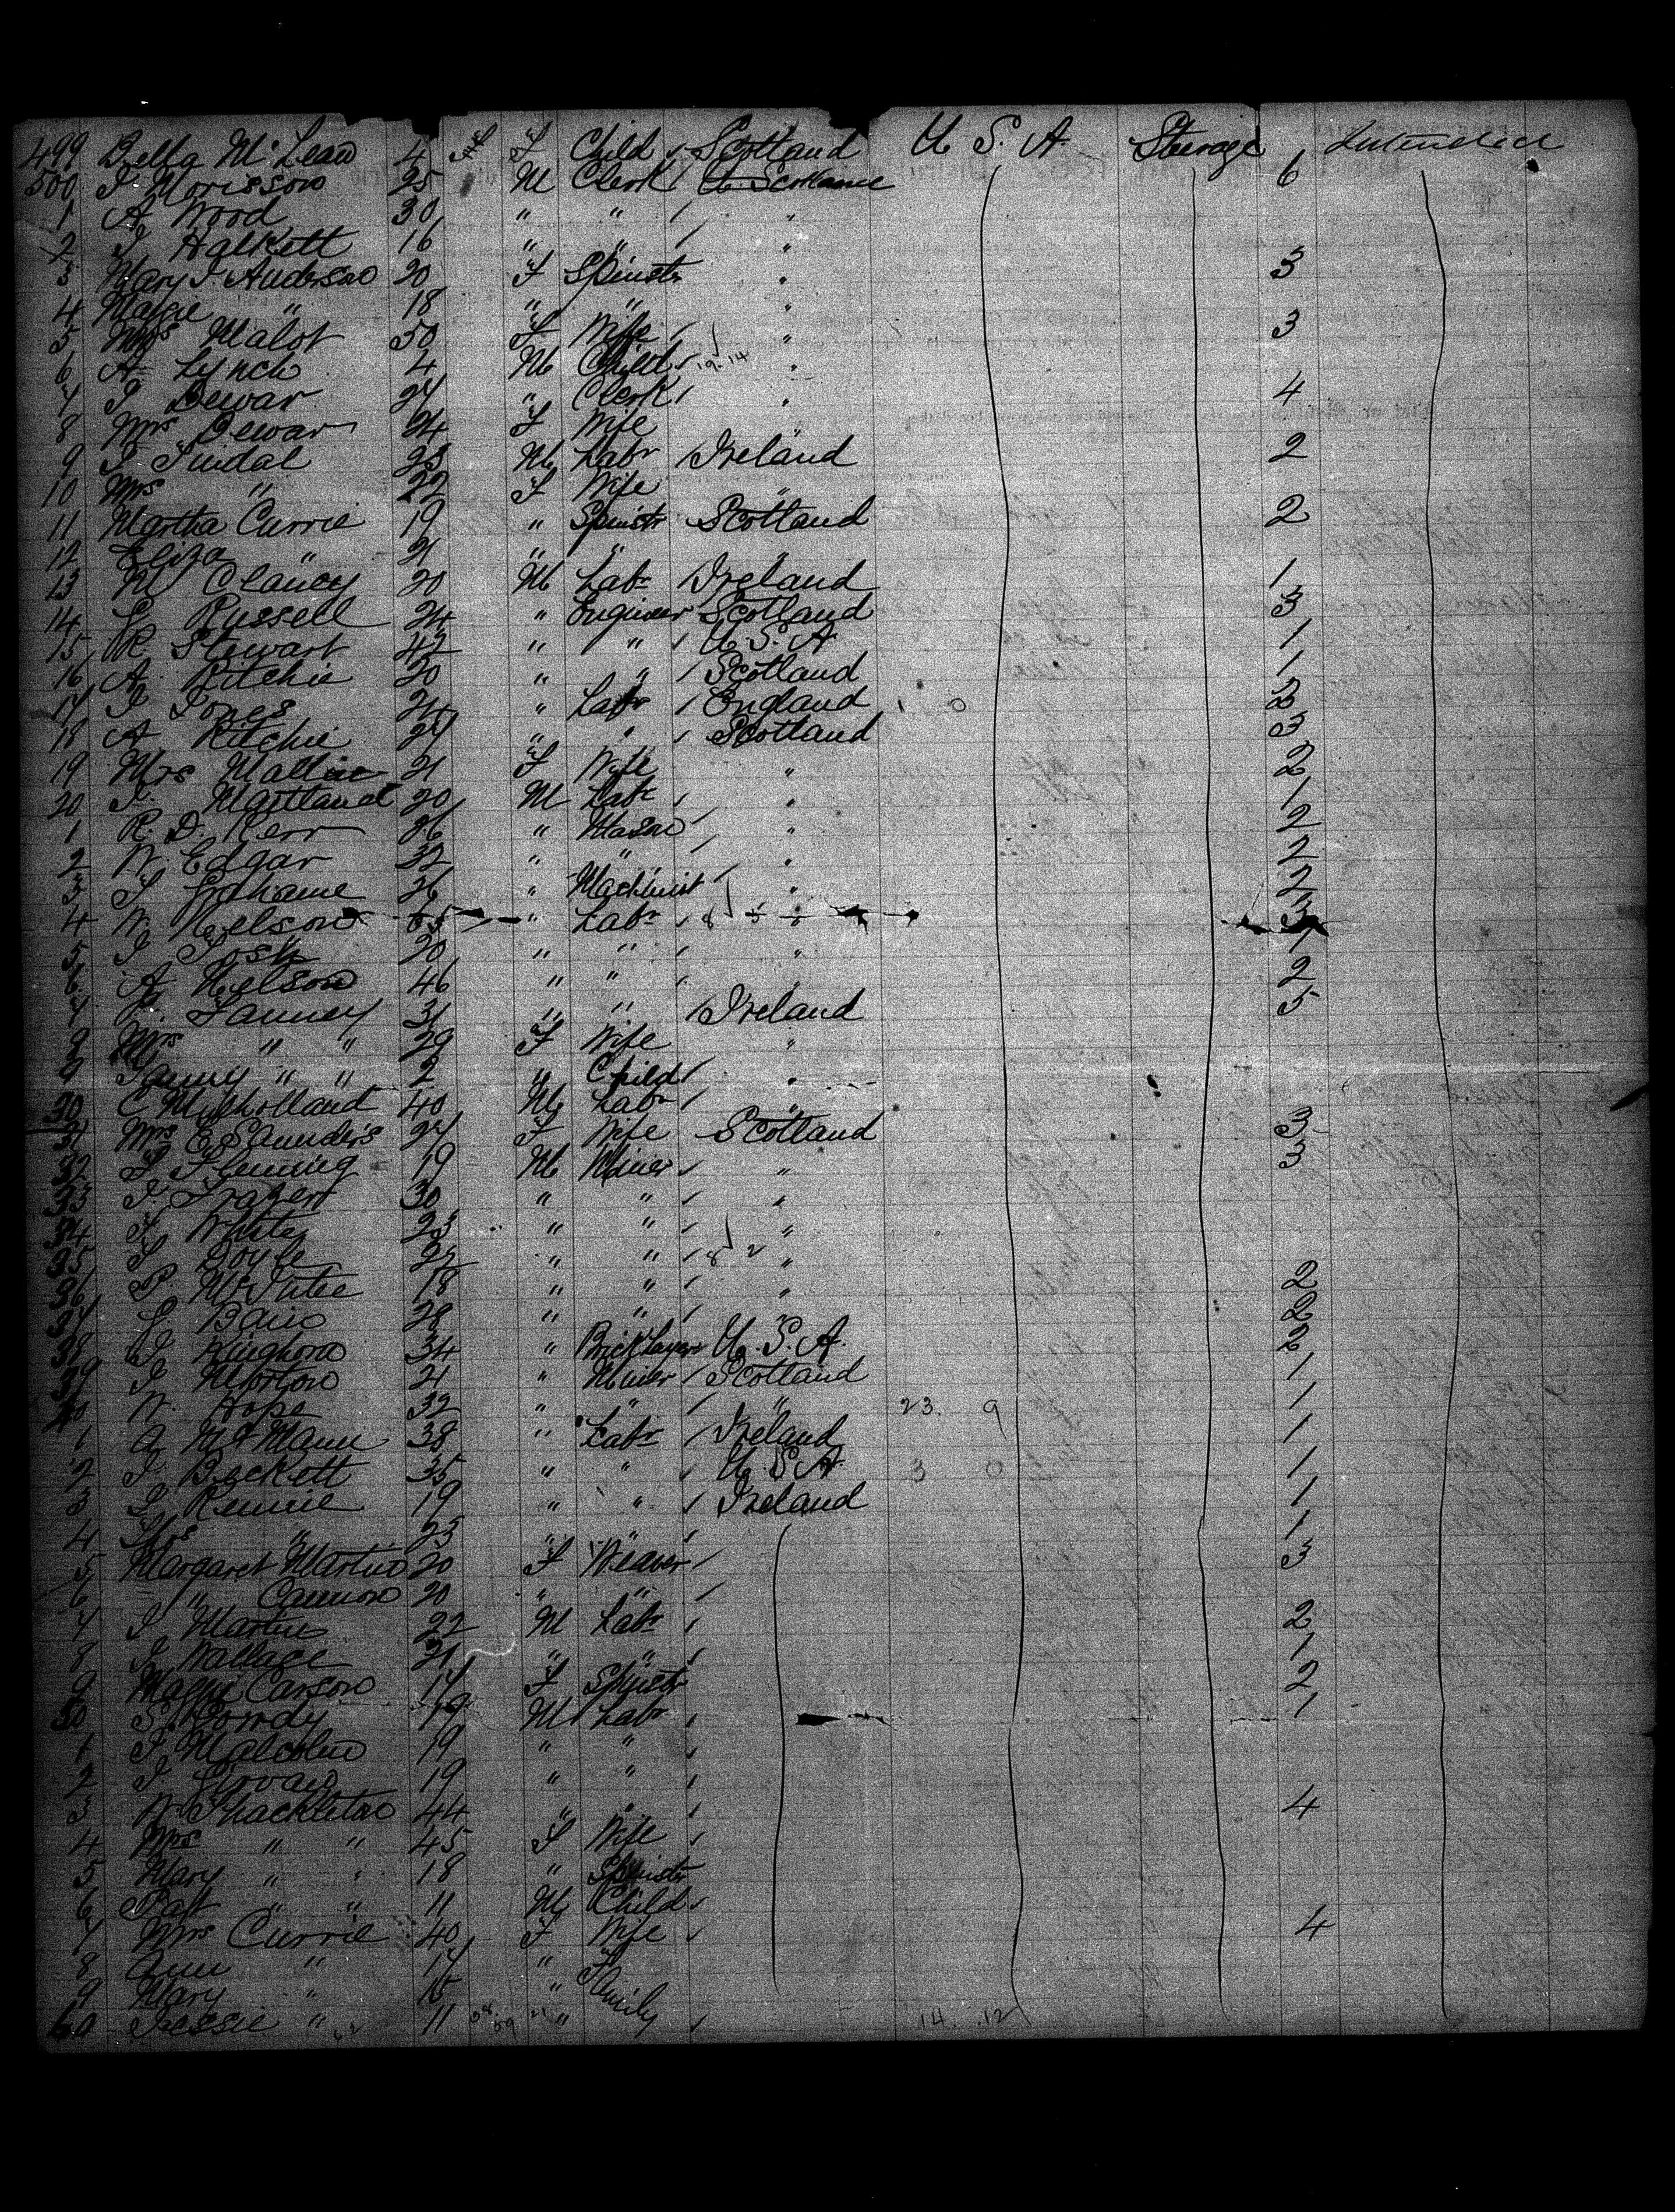 499 Bella McLean 4 F Child Scotland U. S. A. Steerage Intended
500 J Morisson 25 M Clerk Scotland 6
1 A Wood 30 " " "
2 J Halkett 16 " " "
3 Mary J. Anderson 20 F Spinstr " 3
4 Maggie " 18 " " "
5 Mrs Malot 50 F Wife " 3
6 A Lynch 4 M Child "
7 J Dewar 27 " Clerk " 4
8 Mrs Dewar 24 F Wife "
9 J Tindal 23 M Labr Ireland 2
10 Mrs " 22 F Wife "
11 Martha Currie 19 " Spinstr Scotland 2
12 Eliza " 21 " " "
13 M Clancy 20 M Labr Ireland 1
14 G Russell 24 " Engineer Scotland 3
15 R Stewart 42 " " U. S. A. 1
16 A. Ritchie 30 " " Scotland 1
17 J Jones " Labr England 2
18 A Ritchie 27 " " Scotland 3
19 Mrs 21 F Wife " 2
20 J. Maitland 20 M Labr " 1
1 R. D. Kerr 26 " Mason " 2
2 W. Edgar 32 " " " 2
3 J Grahame 26 " Machinist " 2
4 W. Nelson " Labr " 3
5 J Tosh 20 " " " 1
6 A Nelson 46 " " " 2
7 Fanney 31 " " Ireland 5
8 Mrs " " 29 F Wife "
9 " " 2 " Child "
30 C Mulholland 40 M Labr "
31 Mrs E Saunders 27 F Wife Scotland 3
32 J Fleming 19 M Miner " 3
33 J Frazer 30 " " "
34 J White 23 " " "
35 J Doyle 22 " " "
36 P. McIntee 18 " " " 2
37 G Bain 28 " " " 2
38 J Kinghorn 34 " Bricklayer U. S. A. 2
39 J Morton 21 " Miner Scotland 1
40 W. Hope 32 " " " 23 9 1
1 A McMann 38 " Labr Ireland 1
2 J Beckett 35 " " U. S. A. 3 0 1
3 Rennie 19 " " Ireland 1
4 Thos " 23 " " 1
5 Margaret Martin 20 F Weaver 3
6 " Cannon 20 " "
7 J Martin 22 M Labr 2
8 J Wallace 21 " " 1
9 Maggie Carson 17 F Spinstr 2
50 S. 19 M Labr 1
1 J Malcolm 19 " "
2 J Girvan 19 " "
3 W Shackleton 44 " " 4
4 Mrs " " 45 F Wife
5 Mary " " 18 " Spinstr
6 Patt " " 11 M Child
7 Mrs Currie 40 F Wife 4
8 Ann " 17 "
9 Mary " 15 " Family
60 Jessie " 11 " 14 12